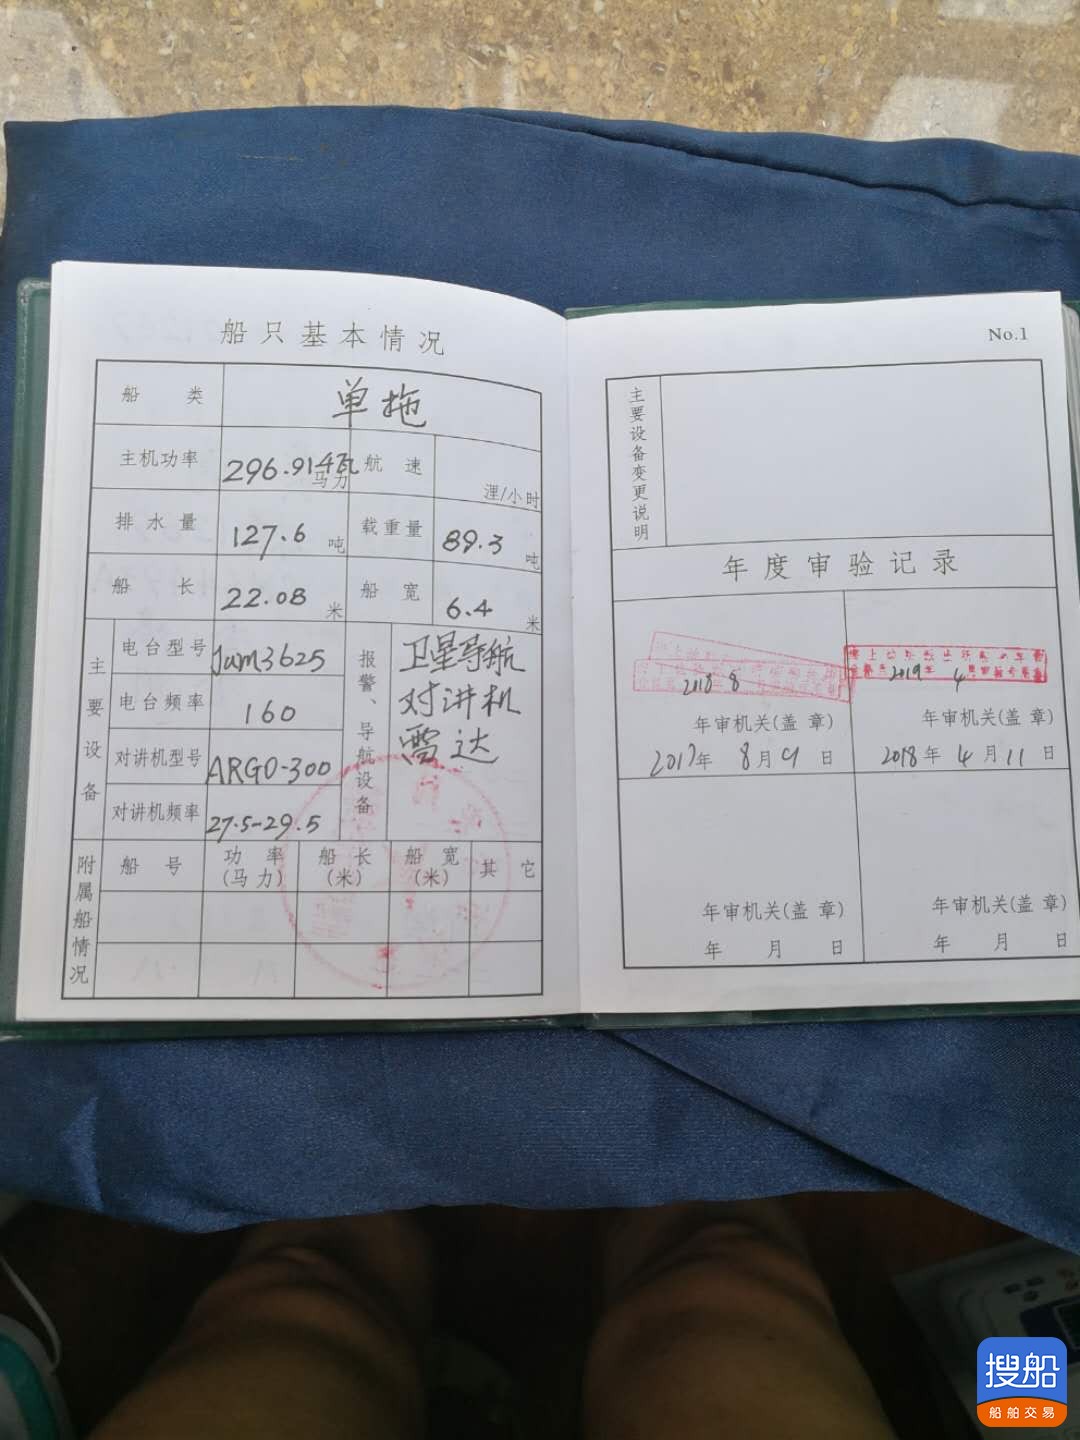 船只基本情况
船 类 单拖
主机功率 296.914瓦 马力 航速 浬/小时
排水量 127.6 吨 载重量 89.3 吨
船 长 22.08 米 船 宽 6.4 米
主要设备
电台型号 Jum3625
电台频率 160
对讲机型号 ARGO-300
对讲机频率 27.5-29.5
报警、导航设备
卫星导航
对讲机
雷达
附属船情况
船 号 功 率(马力) 船 长(米) 船 宽(米) 其 它
No.1
主要设备变更说明
年度审验记录
2018 8
年审机关(盖 章)
2017年 8月9日
2019年 4
年审机关(盖 章)
2018年 4月11日
年审机关(盖 章)
年 月 日
年审机关(盖 章)
年 月 日
搜船
船舶交易